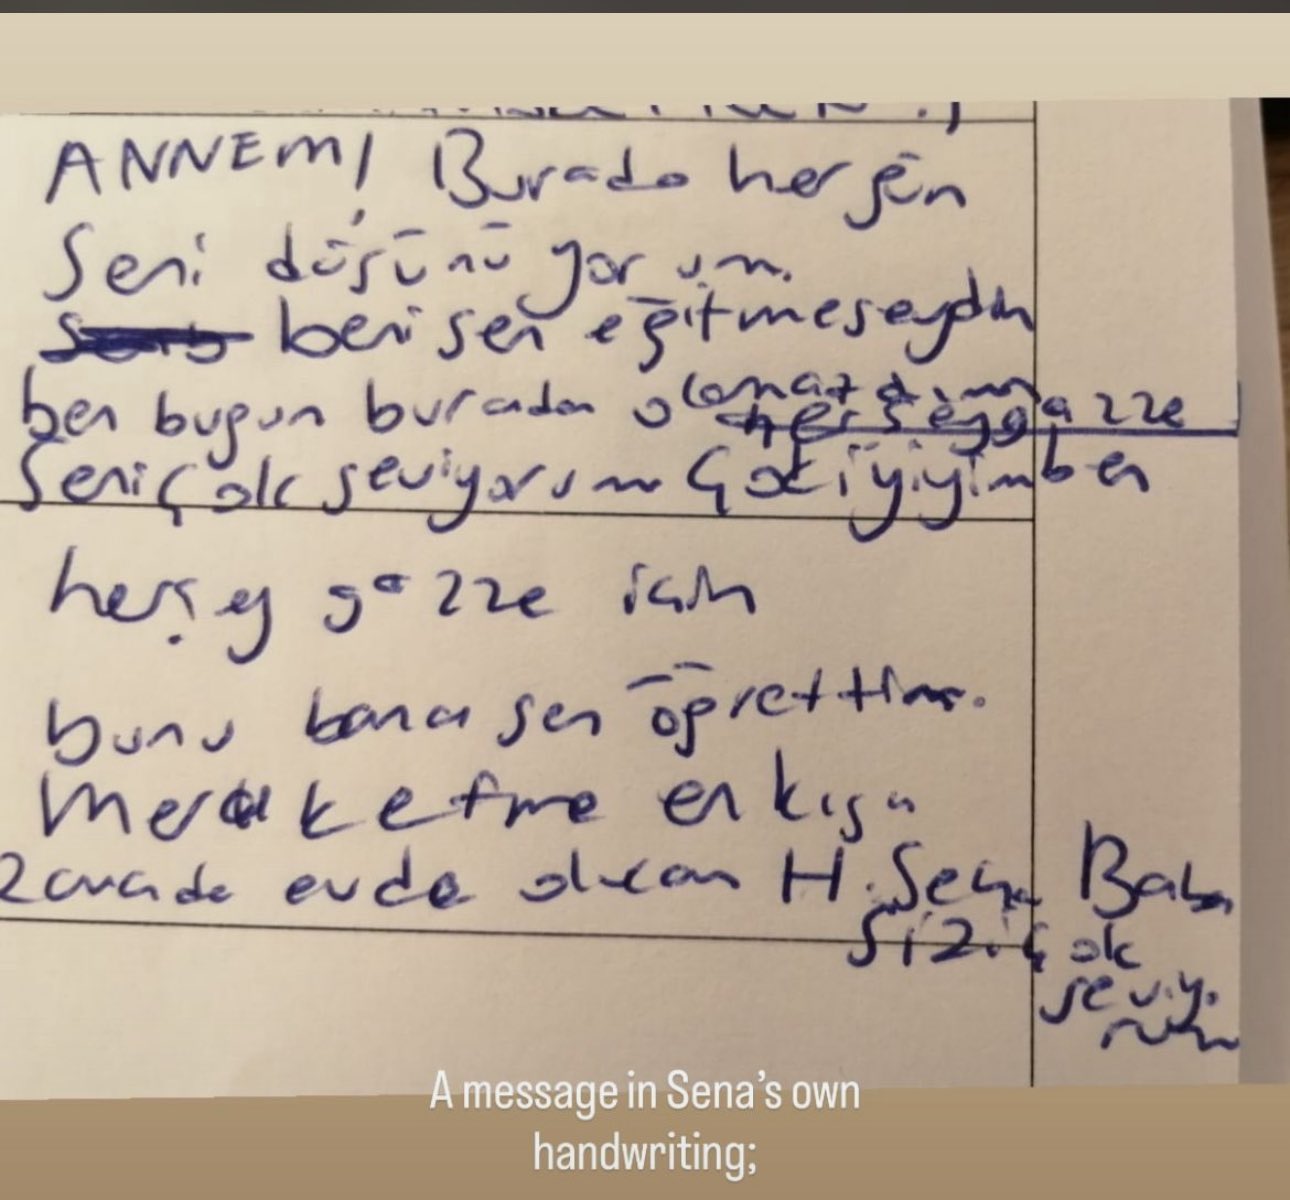 ANNEM! Burada hergün
Seni düşünüyorum.
beni sen eğitmeseydin
ben bugün burada olamazdım gazze
Seni çok seviyorum Çok iyiyim ben
herşey gazze için
bunu bana sen öğrettin.
Merak etme en kısa
zamanda evde olucam H. Baba
Sizi çok
seviyo
rum
A message in Sena's own
handwriting;